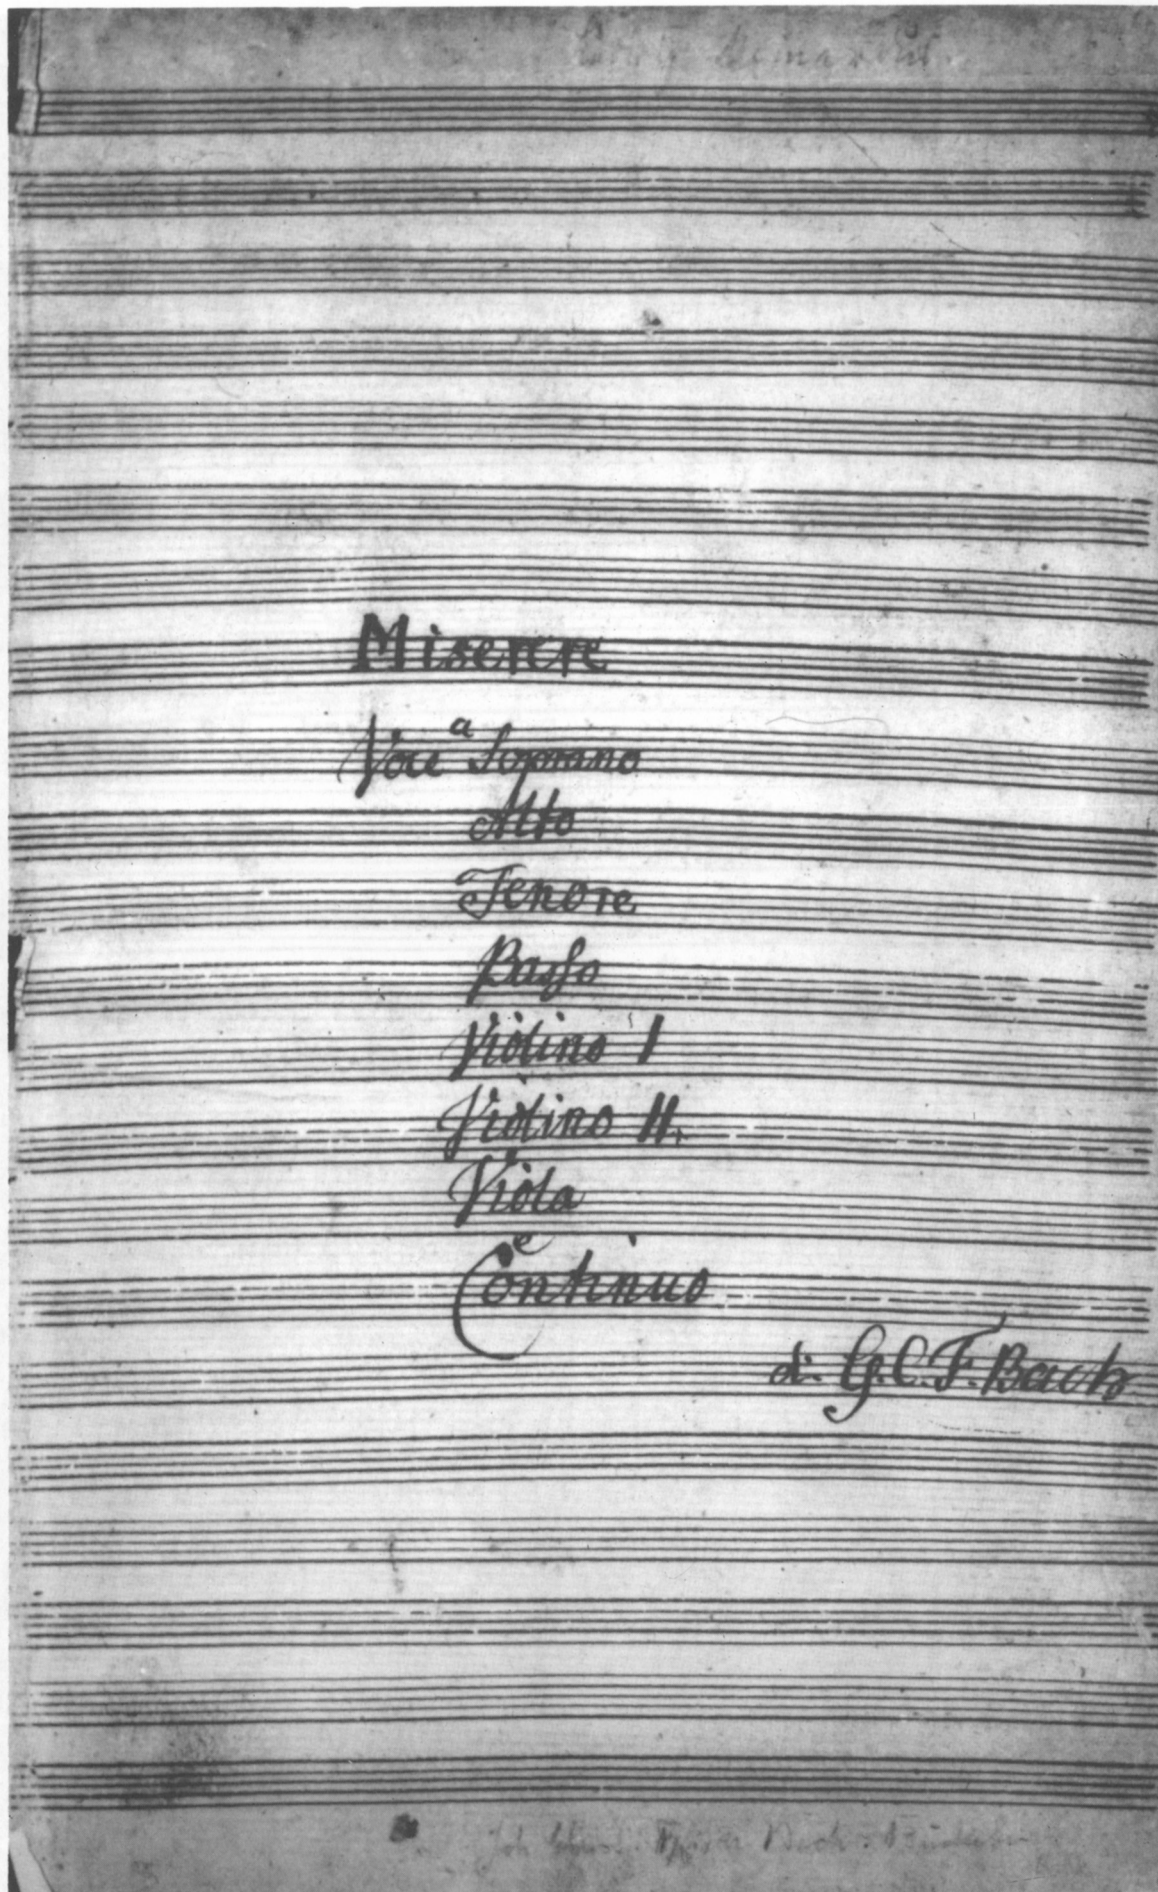 Miserere
a
Voce Soprano
Alto
Tenore
Basso
Violino I
Violino II.
Viola
e
Continuo
di G.C.F. Bach
Bach